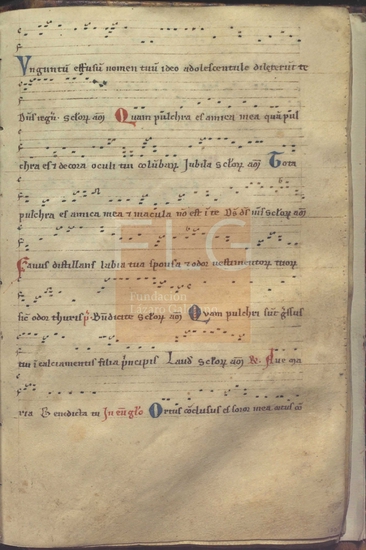 Vnguentũ effusũ nomen tuũ ideo adolescentule dilexerũt te
Dñs regñ. seclor amẽ Quam pulchra es amica mea quã pul
chra es ⁊ decora oculi tui colũbarũ Jubila seclor amẽ Tota
pulchra es amica mea ⁊ macula nõ est ĩ te seclor amẽ
Fauus distillans labia tua sponsa ⁊ odor uestimentorũ tuorũ
sic odor thuris Bñdicite seclor amẽ Quam pulchri sũt gressus
tui ĩ calciamentis filia principis Laud seclor amẽ ℟. Aue ma
ria Benedicta tu Ortus cõclusus es soror mea ortus cõ
FLG
Fundación